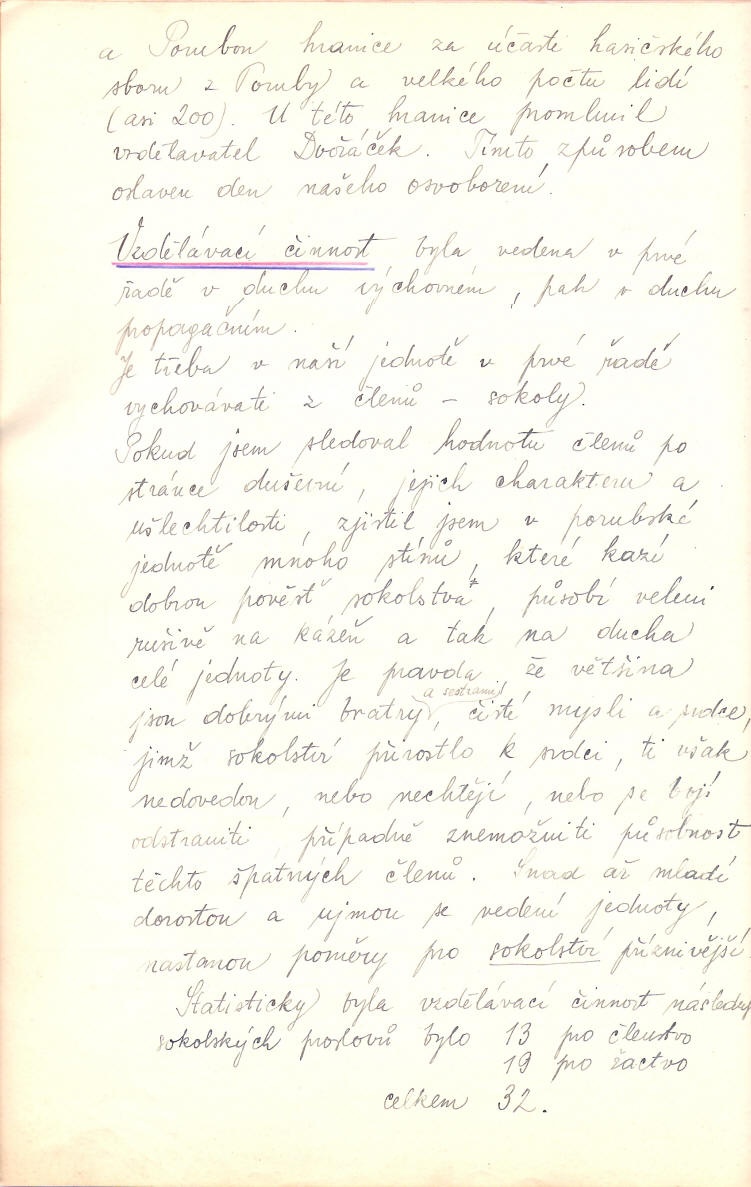 a Porubou hranice za účasti hasičského
sboru z Poruby a velkého počtu lidí
(asi 200). U této hranice promluvil
vzdělavatel Dvořáček. Tímto způsobem
oslaven den našeho osvobození.
Vzdělávací činnost byla vedena v prvé
řadě v duchu výchovném, pak v duchu
propagačním.
Je třeba v naší jednotě v prvé řadě
vychovávati z členů - sokoly.
Pokud jsem sledoval hodnotu členů po
stránce duševní, jejich charakteru a
ušlechtilosti, zjistil jsem v porubské
jednotě mnoho stínů, které kazí
dobrou pověst sokolstva, působí velmi
rušivě na kázeň a tak na ducha
celé jednoty. Je pravda, že většina
a sestrami
jsou dobrými bratry, čisté mysli a srdce,
jimž sokolství přirostlo k srdci, ti však
nedovedou, nebo nechtějí, nebo se bojí
odstraniti, případně znemožniti působnost
těchto špatných členů. Snad až mladí
dorostou a ujmou se vedení jednoty,
nastanou poměry pro sokolství příznivější.
Statisticky byla vzdělávací činnost
sokolských proslovů bylo 13 pro členstvo
19 pro žactvo
celkem 32.